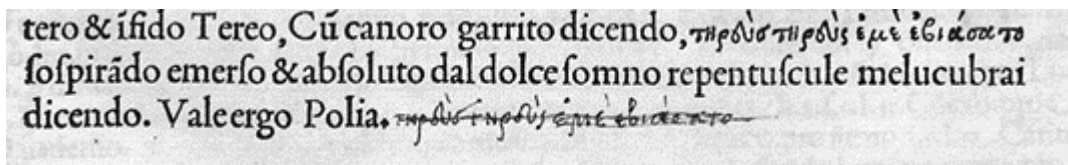 tero & ĩfido Tereo, Cũ canoro garrito dicendo, τηρεὺς τηρεὺς ἐμὲ ἐβιάσατο
ſoſpirãdo emerſo & abſoluto dal dolce ſomno repentuſcule melucubrai
dicendo. Vale ergo Polia. τηρεὺς τηρεὺς ἐμὲ ἐβιάσατο